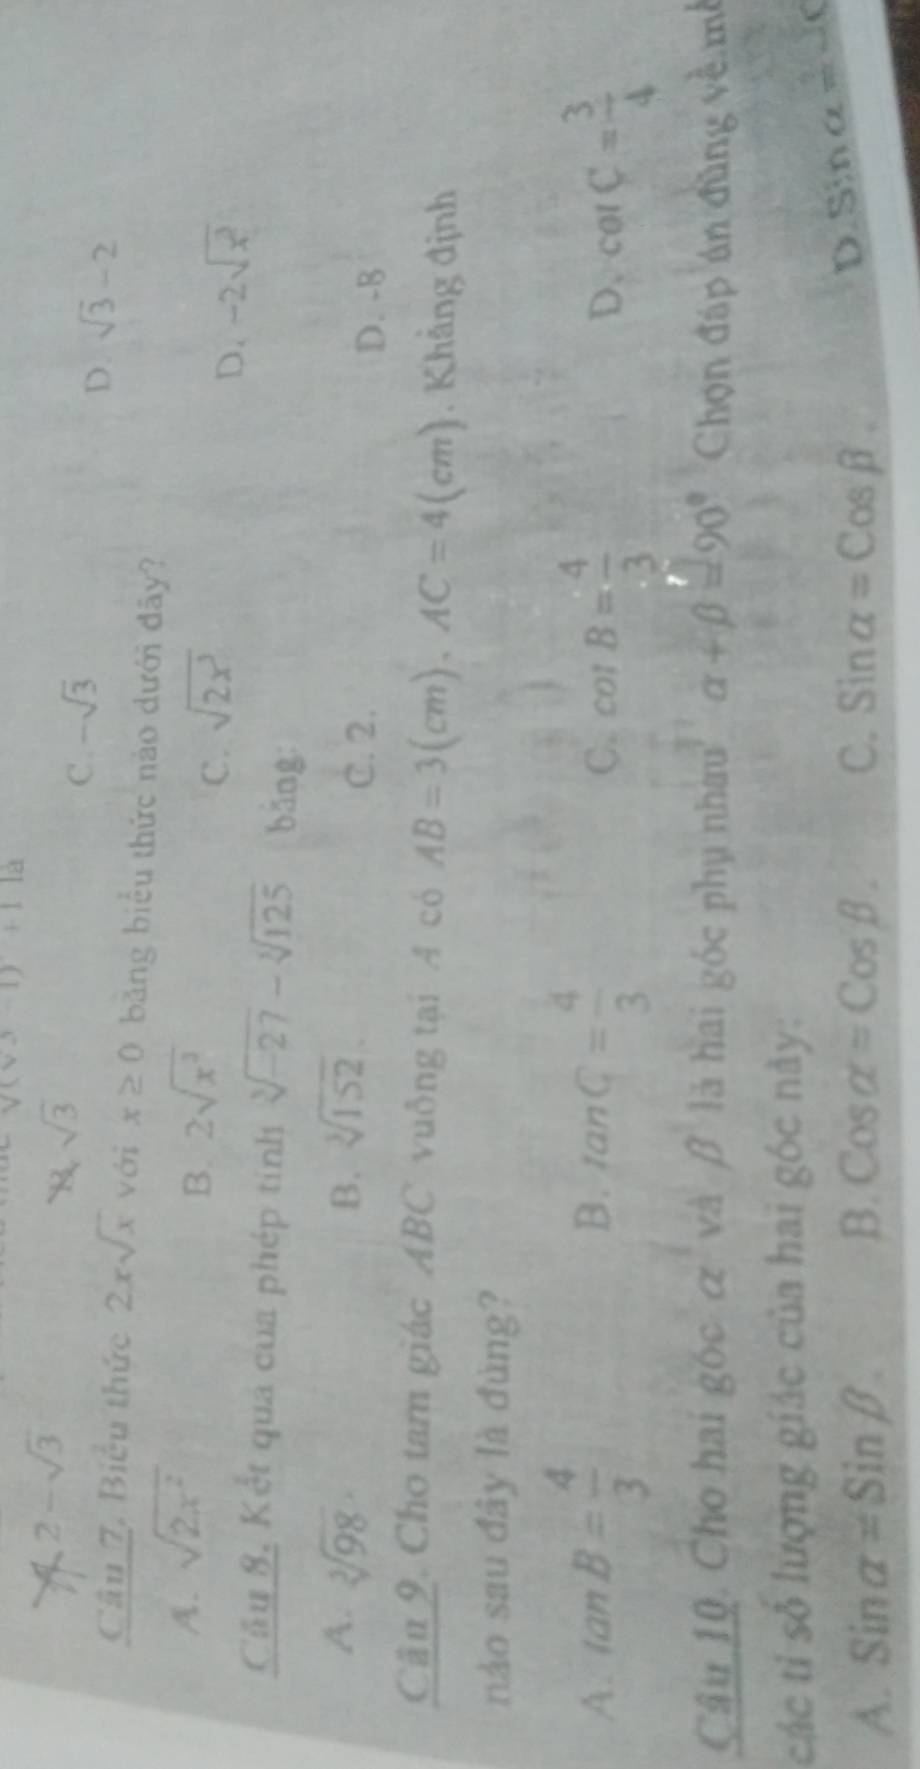 + 1 là
2 − √3 √3 C. −√3 D. √3 − 2
Câu 7. Biểu thức 2x√x với x ≥ 0 bằng biểu thức nào dưới đây?
A. √2x² B. 2√x³ C. √2x³ D. −2√x³
Câu 8. Kết quả của phép tính ∛−27 − ∛125 bằng:
A. ∛98. B. ∛152. C. 2. D. -8
Câu 9. Cho tam giác ABC vuông tại A có AB = 3(cm), AC = 4(cm). Khẳng định
nào sau đây là đúng?
A. tan B = 4/3 B. tan C = 4/3 C. cot B = 4/3 D. cot C = 3/4
Câu 10. Cho hai góc α và β là hai góc phụ nhau α + β = 90° Chọn đáp án đúng về
các tỉ số lượng giác của hai góc này:
A. Sin α = Sin β. B. Cos α = Cos β. C. Sin α = Cos β. D. Sin α =